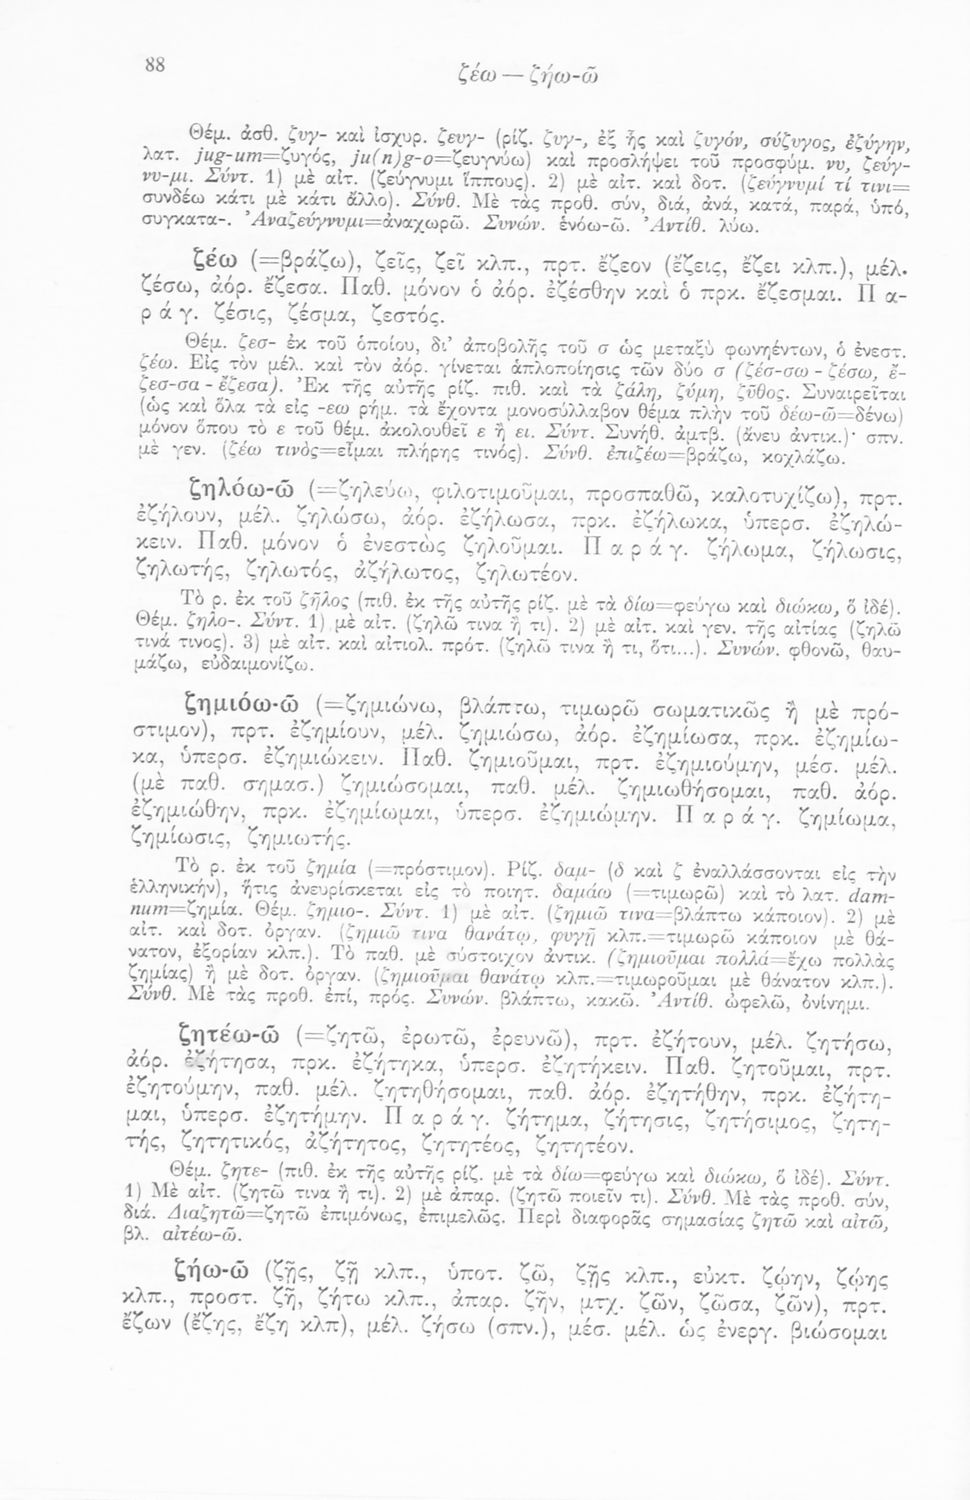 88
ζέω — ζήω-ῶ
Θέμ. ἀσθ. ζυγ- καὶ ἰσχυρ. ζευγ- (ρίζ. ζυγ-, ἐξ ἧς καὶ ζυγόν, σύζυγος, ἐζύγην,
λατ. jug-um=ζυγός, ju(n)g-o=ζευγνύω) καὶ προσλήψει τοῦ προσφύμ. νυ, ζεύγ-
νυ-μι. Σύντ. 1) μὲ αἰτ. (ζεύγνυμι ἵππους). 2) μὲ αἰτ. καὶ δοτ. (ζεύγνυμί τί τινι=
συνδέω κάτι μὲ κάτι ἄλλο). Σύνθ. Μὲ τὰς προθ. σύν, διά, ἀνά, κατά, παρά, ὑπό,
συγκατα-. Ἀναζεύγνυμι=ἀναχωρῶ. Συνών. ἑνόω-ῶ. Ἀντίθ. λύω.
ζέω (=βράζω), ζεῖς, ζεῖ κλπ., πρτ. ἔζεον (ἔζεις, ἔζει κλπ.), μέλ.
ζέσω, ἀόρ. ἔζεσα. Παθ. μόνον ὁ ἀόρ. ἐζέσθην καὶ ὁ πρκ. ἔζεσμαι. Π α-
ρ ά γ. ζέσις, ζέσμα, ζεστός.
Θέμ. ζεσ- ἐκ τοῦ ὁποίου, δι᾿ ἀποβολῆς τοῦ σ ὡς μεταξὺ φωνηέντων, ὁ ἐνεστ.
ζέω. Εἰς τὸν μέλ. καὶ τὸν ἀόρ. γίνεται ἁπλοποίησις τῶν δύο σ (ζέσ-σω - ζέσω, ἔ-
ζεσ-σα - ἔζεσα). Ἐκ τῆς αὐτῆς ρίζ. πιθ. καὶ τὰ ζάλη, ζύμη, ζῦθος. Συναιρεῖται
(ὡς καὶ ὅλα τὰ εἰς -εω ρήμ. τὰ ἔχοντα μονοσύλλαβον θέμα πλὴν τοῦ δέω-ῶ=δένω)
μόνον ὅπου τὸ ε τοῦ θέμ. ἀκολουθεῖ ε ἢ ει. Σύντ. Συνήθ. ἀμτβ. (ἄνευ ἀντικ.)· σπν.
μὲ γεν. (ζέω τινὸς=εἶμαι πλήρης τινός). Σύνθ. ἐπιζέω=βράζω, κοχλάζω.
ζηλόω-ῶ (=ζηλεύω, φιλοτιμοῦμαι, προσπαθῶ, καλοτυχίζω), πρτ.
ἐζήλουν, μέλ. ζηλώσω, ἀόρ. ἐζήλωσα, πρκ. ἐζήλωκα, ὑπερσ. ἐζηλώ-
κειν. Παθ. μόνον ὁ ἐνεστὼς ζηλοῦμαι. Π α ρ ά γ. ζήλωμα, ζήλωσις,
ζηλωτής, ζηλωτός, ἀζήλωτος, ζηλωτέον.
Τὸ ρ. ἐκ τοῦ ζῆλος (πιθ. ἐκ τῆς αὐτῆς ρίζ. μὲ τὰ δίω=φεύγω καὶ διώκω, ὃ ἰδέ).
Θέμ. ζηλο-. Σύντ. 1) μὲ αἰτ. (ζηλῶ τινα ἢ τι). 2) μὲ αἰτ. καὶ γεν. τῆς αἰτίας (ζηλῶ
τινά τινος). 3) μὲ αἰτ. καὶ αἰτιολ. πρότ. (ζηλῶ τινα ἢ τι, ὅτι...). Συνών. φθονῶ, θαυ-
μάζω, εὐδαιμονίζω.
ζημιόω-ῶ (=ζημιώνω, βλάπτω, τιμωρῶ σωματικῶς ἢ μὲ πρό-
στιμον), πρτ. ἐζημίουν, μέλ. ζημιώσω, ἀόρ. ἐζημίωσα, πρκ. ἐζημίω-
κα, ὑπερσ. ἐζημιώκειν. Παθ. ζημιοῦμαι, πρτ. ἐζημιούμην, μέσ. μέλ.
(μὲ παθ. σημασ.) ζημιώσομαι, παθ. μέλ. ζημιωθήσομαι, παθ. ἀόρ.
ἐζημιώθην, πρκ. ἐζημίωμαι, ὑπερσ. ἐζημιώμην. Π α ρ ά γ. ζημίωμα,
ζημίωσις, ζημιωτής.
Τὸ ρ. ἐκ τοῦ ζημία (=πρόστιμον). Ρίζ. δαμ- (δ καὶ ζ ἐναλλάσσονται εἰς τὴν
ἑλληνικήν), ἥτις ἀνευρίσκεται εἰς τὸ ποιητ. δαμάω (=τιμωρῶ) καὶ τὸ λατ. dam-
num=ζημία. Θέμ. ζημιο-. Σύντ. 1) μὲ αἰτ. (ζημιῶ τινα=βλάπτω κάποιον). 2) μὲ
αἰτ. καὶ δοτ. ὀργαν. (ζημιῶ τινα θανάτῳ, φυγῇ κλπ.=τιμωρῶ κάποιον μὲ θά-
νατον, ἐξορίαν κλπ.). Τὸ παθ. μὲ σύστοιχον ἀντικ. (ζημιοῦμαι πολλὰ=ἔχω πολλὰς
ζημίας) ἢ μὲ δοτ. ὀργαν. (ζημιοῦμαι θανάτῳ κλπ.=τιμωροῦμαι μὲ θάνατον κλπ.).
Σύνθ. Μὲ τὰς προθ. ἐπί, πρός. Συνών. βλάπτω, κακῶ. Ἀντίθ. ὠφελῶ, ὀνίνημι.
ζητέω-ῶ (=ζητῶ, ἐρωτῶ, ἐρευνῶ), πρτ. ἐζήτουν, μέλ. ζητήσω,
ἀόρ. ἐζήτησα, πρκ. ἐζήτηκα, ὑπερσ. ἐζητήκειν. Παθ. ζητοῦμαι, πρτ.
ἐζητούμην, παθ. μέλ. ζητηθήσομαι, παθ. ἀόρ. ἐζητήθην, πρκ. ἐζήτη-
μαι, ὑπερσ. ἐζητήμην. Π α ρ ά γ. ζήτημα, ζήτησις, ζητήσιμος, ζητη-
τής, ζητητικός, ἀζήτητος, ζητητέος, ζητητέον.
Θέμ. ζητε- (πιθ. ἐκ τῆς αὐτῆς ρίζ. μὲ τὰ δίω=φεύγω καὶ διώκω, ὃ ἰδέ). Σύντ.
1) Μὲ αἰτ. (ζητῶ τινα ἢ τι). 2) μὲ ἀπαρ. (ζητῶ ποιεῖν τι). Σύνθ. Μὲ τὰς προθ. σύν,
διά. Διαζητῶ=ζητῶ ἐπιμόνως, ἐπιμελῶς. Περὶ διαφορᾶς σημασίας ζητῶ καὶ αἰτῶ,
βλ. αἰτέω-ῶ.
ζήω-ῶ (ζῇς, ζῇ κλπ., ὑποτ. ζῶ, ζῇς κλπ., εὐκτ. ζῴην, ζῴης
κλπ., προστ. ζῆ, ζήτω κλπ., ἀπαρ. ζῆν, μτχ. ζῶν, ζῶσα, ζῶν), πρτ.
ἔζων (ἔζης, ἔζη κλπ), μέλ. ζήσω (σπν.), μέσ. μέλ. ὡς ἐνεργ. βιώσομαι